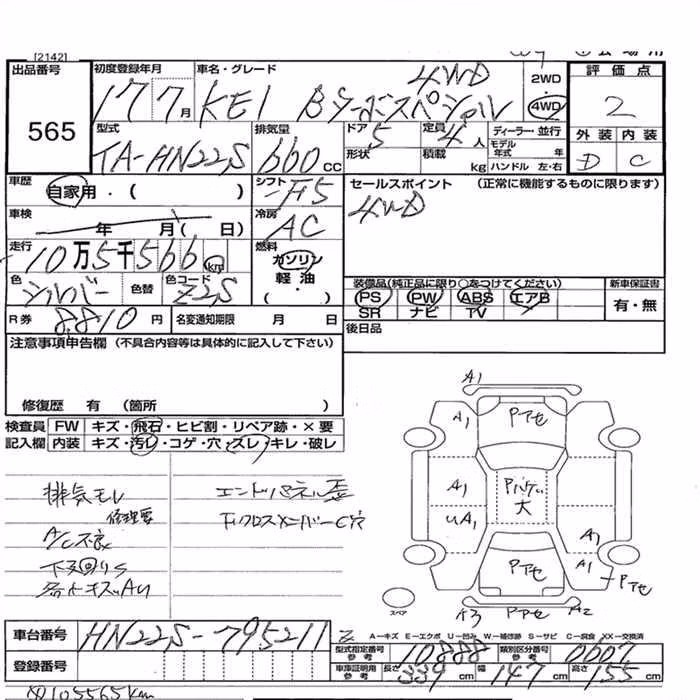 [2142]
出品番号
565
初度登録年月
17 7月
車名・グレード
KEI Bターボスペシャル 4WD
2WD
4WD
評価点
2
外装 内装
D C
型式
TA-HN22S
排気量
660 CC
ドア 5
形状
定員 4人
積載 kg
ディーラー・並行
モデル年式 年
ハンドル 左・右
車歴
自家用・( )
シフト
F5
セールスポイント (正常に機能するものに限ります)
4WD
車検
年 月( 日)
冷房
AC
走行
10万5千566 km
燃料
ガソリン
軽油
( ・ )
色
シルバー
色替
色コード
Z2S
装備品(純正品に限り○をつけてください)
PS PW ABS エアB
SR ナビ TV
新車保証書
有・無
R券
8810円
名変通知期限 月 日
後日品
注意事項申告欄 (不具合内容等は具体的に記入して下さい)
修復歴 有 (箇所 )
検査員記入欄
FW キズ・飛石・ヒビ割・リペア跡・×要
内装 キズ・汚レ・コゲ・穴・ズレ・キレ・破レ
排気モレ
修理要
A/C不良
下回りS
エンドパネル歪
Fクロスメンバー C穴
A1
A1
Pアセ
A1
UA1
Pルーフ
大
A1
A1
Pアセ
Pアセ
A3
A2
スペア
A−キズ E−エクボ U−凹み W−補修跡 S−サビ C−腐食 XX−交換済
車台番号
HN22S-795211
登録番号
型式指定番号 参考
10888
類別区分番号 参考
0607
車庫証明用 参考
長さ 339cm
幅 147cm
高さ 155cm
105565km